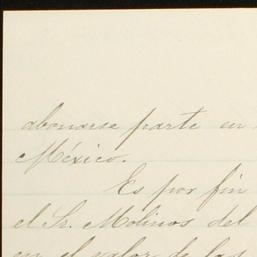 abonarse parte en
México.
Es por fin
el Sr. Molinos del
en el valor de las